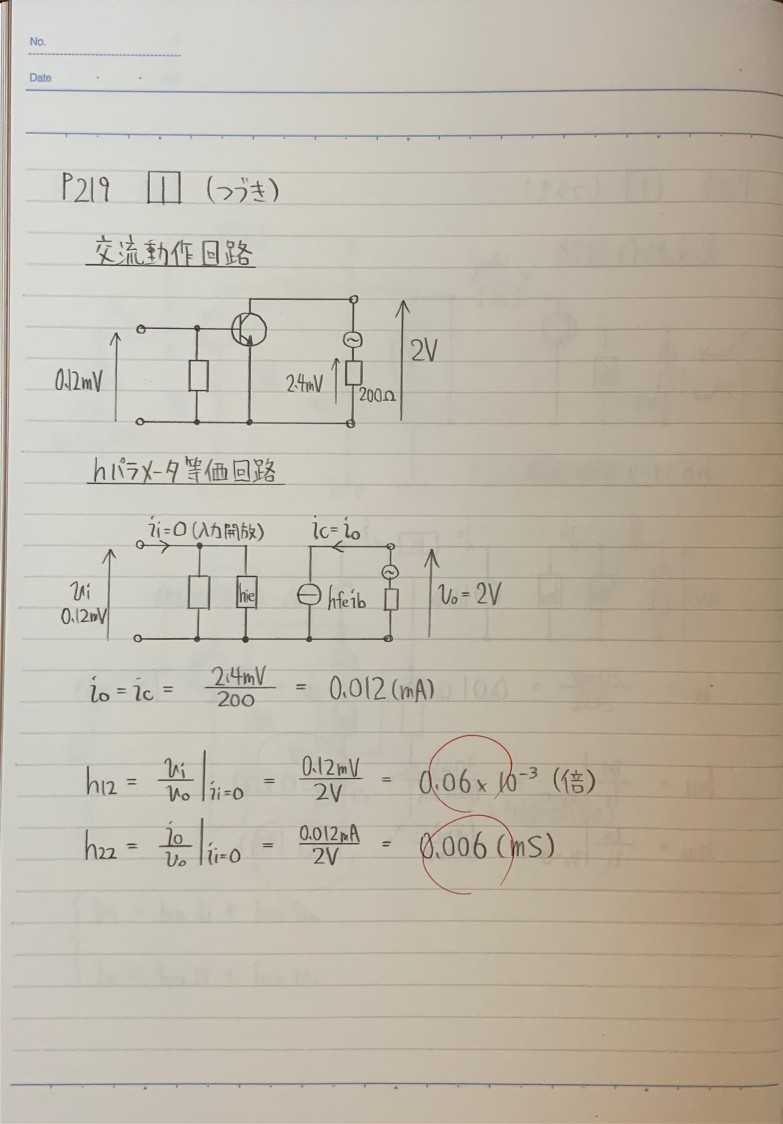 No.
Date
P219 1 (つづき)
交流動作回路
0.12mV
2.4mV
200Ω
2V
hパラメータ等価回路
ii=0 (入力開放)
ic=io
vi
0.12mV
hie
hfeib
vo=2V
io = ic = 2.4mV/200 = 0.012 (mA)
h12 = vi/vo | ii=0 = 0.12mV/2V = 0.06 × 10⁻³ (倍)
h22 = io/vo | ii=0 = 0.012mA/2V = 0.006 (mS)